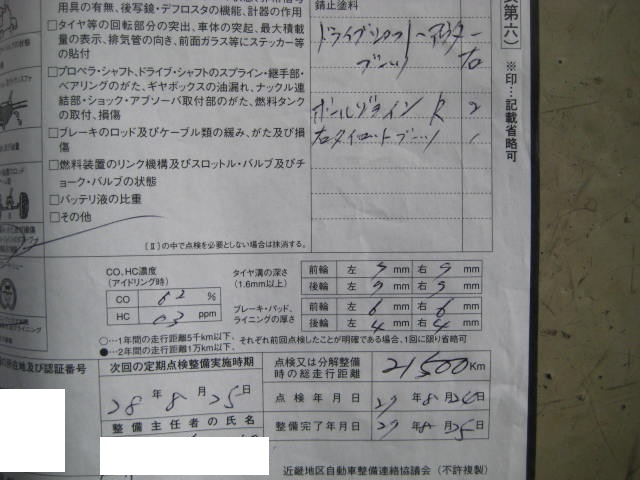 用具の有無、後写鏡・デフロスタの機能、計器の作用
□タイヤ等の回転部分の突出、車体の突起、最大積載
量の表示、排気管の向き、前面ガラス等にステッカー等
の貼付
□プロペラ・シャフト、ドライブ・シャフトのスプライン・継手部・
ベアリングのがた、ギヤボックスの油漏れ、ナックル連
結部・ショック・アブソーバ取付部のがた、燃料タンク
の取付、損傷
□ブレーキのロッド及びケーブル類の緩み、がた及び損
傷
□燃料装置のリンク機構及びスロットル・バルブ及びチ
ョーク・バルブの状態
□バッテリ液の比重
□その他
〔Ⅱ〕の中で点検を必要としない場合は抹消する。
錆止塗料
ドライブシャフトアウター
ブーツ 右
ボールジョイント R 2
右タイロットブーツ 1
第六)
※印…記載省略可
CO、HC濃度
(アイドリング時)
CO %
HC 03 ppm
タイヤ溝の深さ
(1.6mm以上)
前輪 左 5 mm 右 5 mm
後輪 左 5 mm 右 5 mm
ブレーキ・パッド、
ライニングの厚さ
前輪 左 6 mm 右 6 mm
後輪 左 4 mm 右 4 mm
○…1年間の走行距離5千km以下、
●…2年間の走行距離1万km以下、それぞれ前回点検したことが明確である場合、1回に限り省略可
の所在地及び認証番号
次回の定期点検整備実施時期
28年8月25日
整備主任者の氏名
点検又は分解整備
時の総走行距離
21500Km
点検年月日 27年8月24日
整備完了年月日 27年8月25日
近畿地区自動車整備連絡協議会(不許複製)